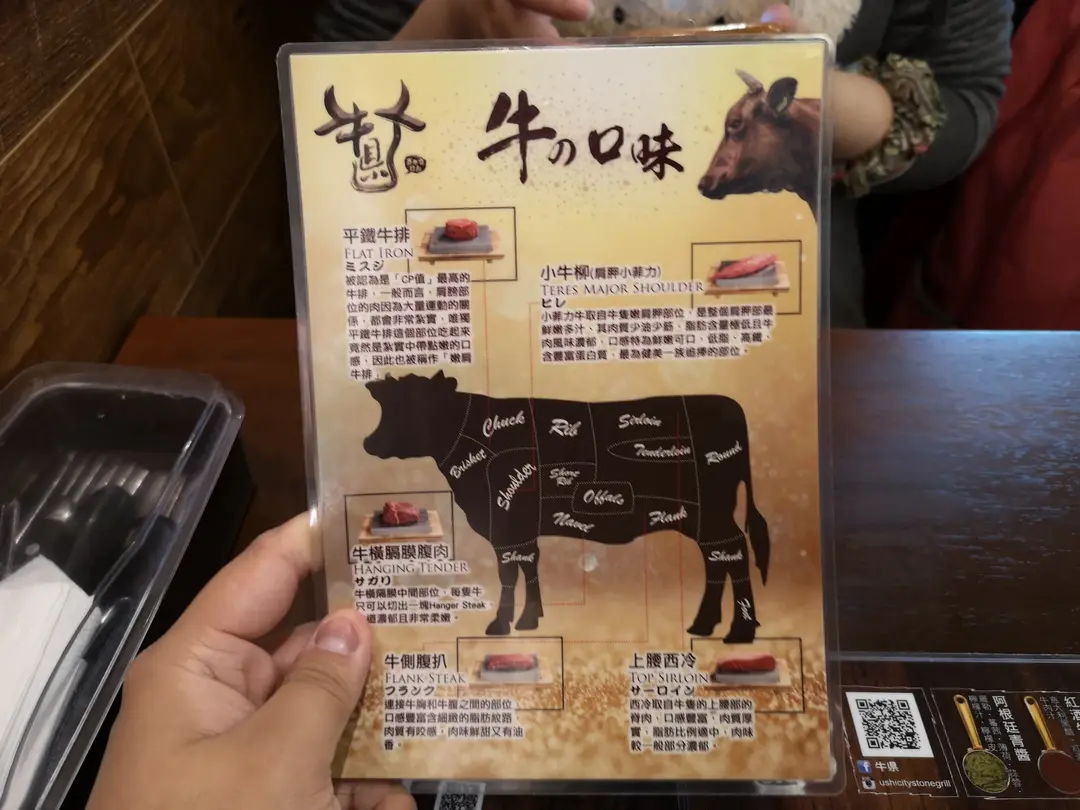 牛県
牛の口味
平鐵牛排
FLAT IRON
ミスジ
被認為是「CP值」最高的
牛排，一般而言，肩膀部
位的肉因為大量運動的關
係，都會非常紮實，唯獨
平鐵牛排這個部位吃起來
竟然是紮實中帶點嫩的口
感，因此也被稱作「嫩肩
牛排」
小牛柳(肩胛小菲力)
TERES MAJOR SHOULDER
ヒレ
小菲力牛取自牛隻嫩肩胛部位，是整個肩胛部最
鮮嫩多汁，其肉質少油少筋、脂肪含量極低且牛
肉風味濃郁，口感特為鮮嫩可口，低脂、高鐵、
含豐富蛋白質，最為健美一族追捧的部位。
Chuck
Rib
Sirloin
Tenderloin
Round
Brisket
Shoulder
Short
Rib
Offals
Navel
Flank
Shank
Shank
Foot
牛橫膈膜腹肉
HANGING TENDER
サガリ
牛橫隔膜中間部位，每隻牛
只可以切出一塊Hanger Steak，
道濃郁且非常柔嫩。
牛側腹扒
FLANK STEAK
フランク
連接牛胸和牛腹之間的部位
口感豐富含細緻的脂肪紋路，
肉質有咬感，肉味鮮甜又有油
香。
上腰西冷
TOP SIRLOIN
サーロイン
西冷取自牛隻的上腰部的
脊肉，口感豐富，肉質厚
實，脂肪比例適中，肉味
較一般部分濃郁。
牛県
ushicitystonegrill
阿根廷青醬
紅酒